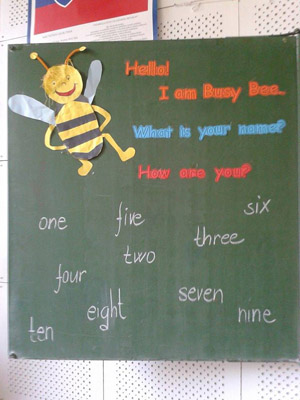 Hello!
I am Busy Bee.
What is your name?
How are you?
six
one five
three
two
four
seven
eight
nine
ten